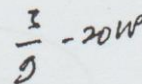 3/9 - 20W